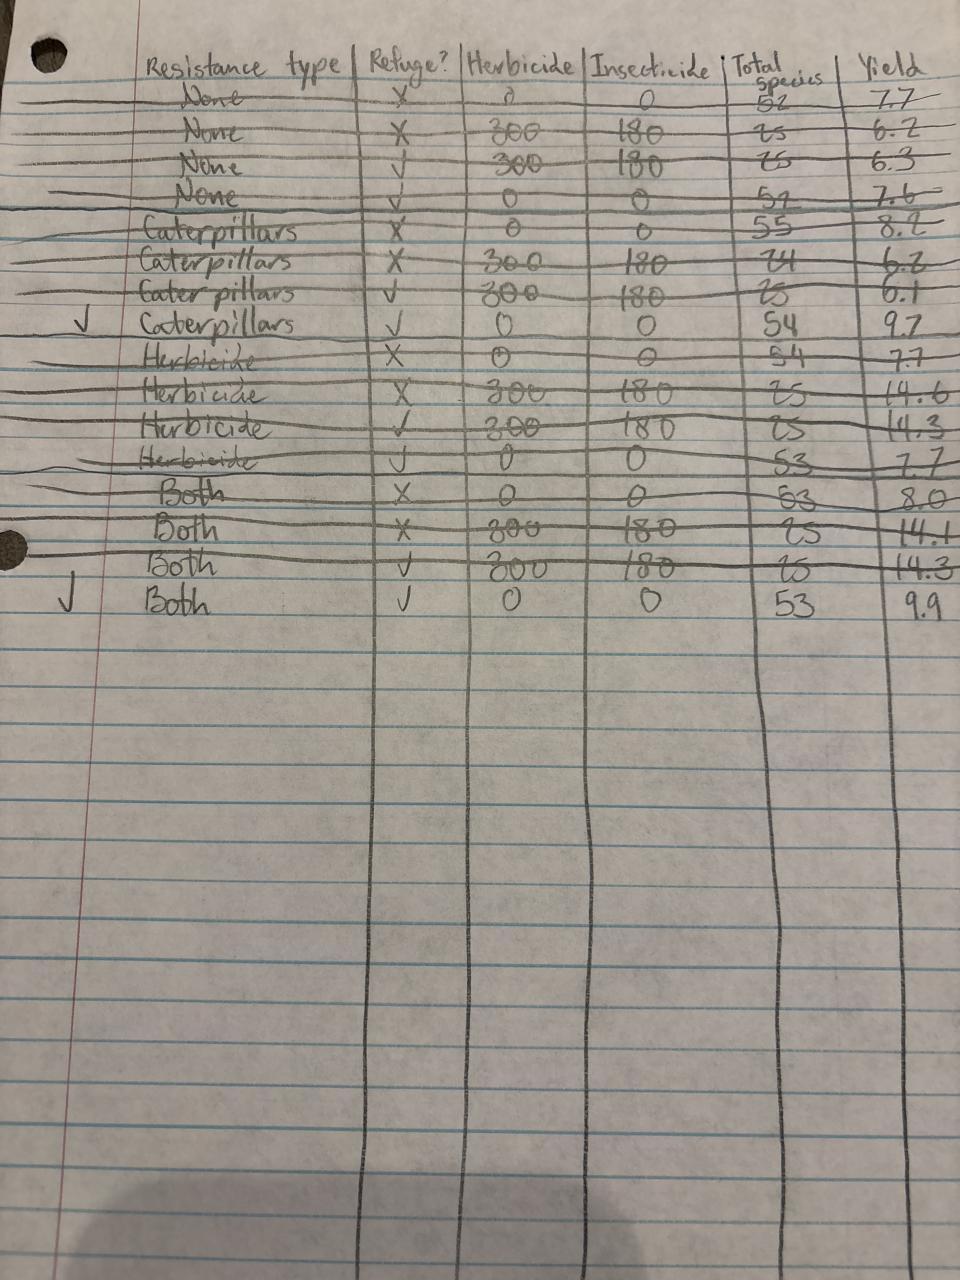 Resistance type Refuge? Herbicide Insecticide Total species Yield
None X 0 0 52 7.7
None X 300 180 25 6.2
None ✓ 300 180 25 6.3
None ✓ 0 0 52 7.6
Caterpillars X 0 0 55 8.2
Caterpillars X 300 180 24 6.2
Caterpillars ✓ 300 180 25 6.1
✓ Caterpillars ✓ 0 0 54 9.7
Herbicide X 0 0 54 7.7
Herbicide X 300 180 25 14.6
Herbicide ✓ 300 180 25 14.3
Herbicide ✓ 0 0 53 7.7
Both X 0 0 53 8.0
Both X 300 180 25 14.1
Both ✓ 300 180 25 14.3
✓ Both ✓ 0 0 53 9.9